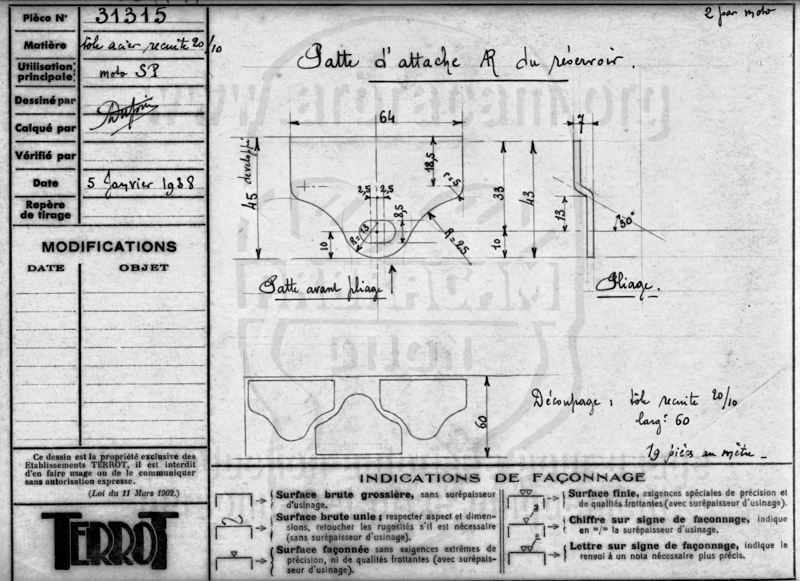 Pièce N° 31315
Matière tôle acier recuite 20/10
Utilisation principale: moto SP
Dessiné par
Calqué par
Vérifié par
Date 5 Janvier 1938
Repère de tirage
MODIFICATIONS
DATE OBJET
Ce dessin est la propriété exclusive des
Etablissements TERROT, il est interdit
d'en faire usage ou de le communiquer
sans autorisation expresse.
(Loi du 11 Mars 1902.)
TERROT
2 par moto
Patte d'attache AR du réservoir.
64
7
45 développé
18,5
r=5
2,5 2,5
8,5
R=13
R=25
10
33
10
43
13
30°
Patte avant pliage
Pliage.
60
Découpage : tôle recuite 20/10
largr 60
19 pièces au mètre_
INDICATIONS DE FAÇONNAGE
Surface brute grossière, sans surépaisseur
d'usinage.
Surface brute unie; respecter aspect et dimen-
sions, retoucher les rugosités s'il est nécessaire
(sans surépaisseur d'usinage).
Surface façonnée sans exigences extrêmes de
précision, ni de qualités frottantes (avec surépais-
seur d'usinage).
Surface finie, exigences spéciales de précision et
de qualités frottantes (avec surépaisseur d'usinage).
Chiffre sur signe de façonnage, indique
en m/m la surépaisseur d'usinage.
Lettre sur signe de façonnage, indique le
renvoi à un nota nécessaire plus précis.
www.arbracam.org
ARBRACAM